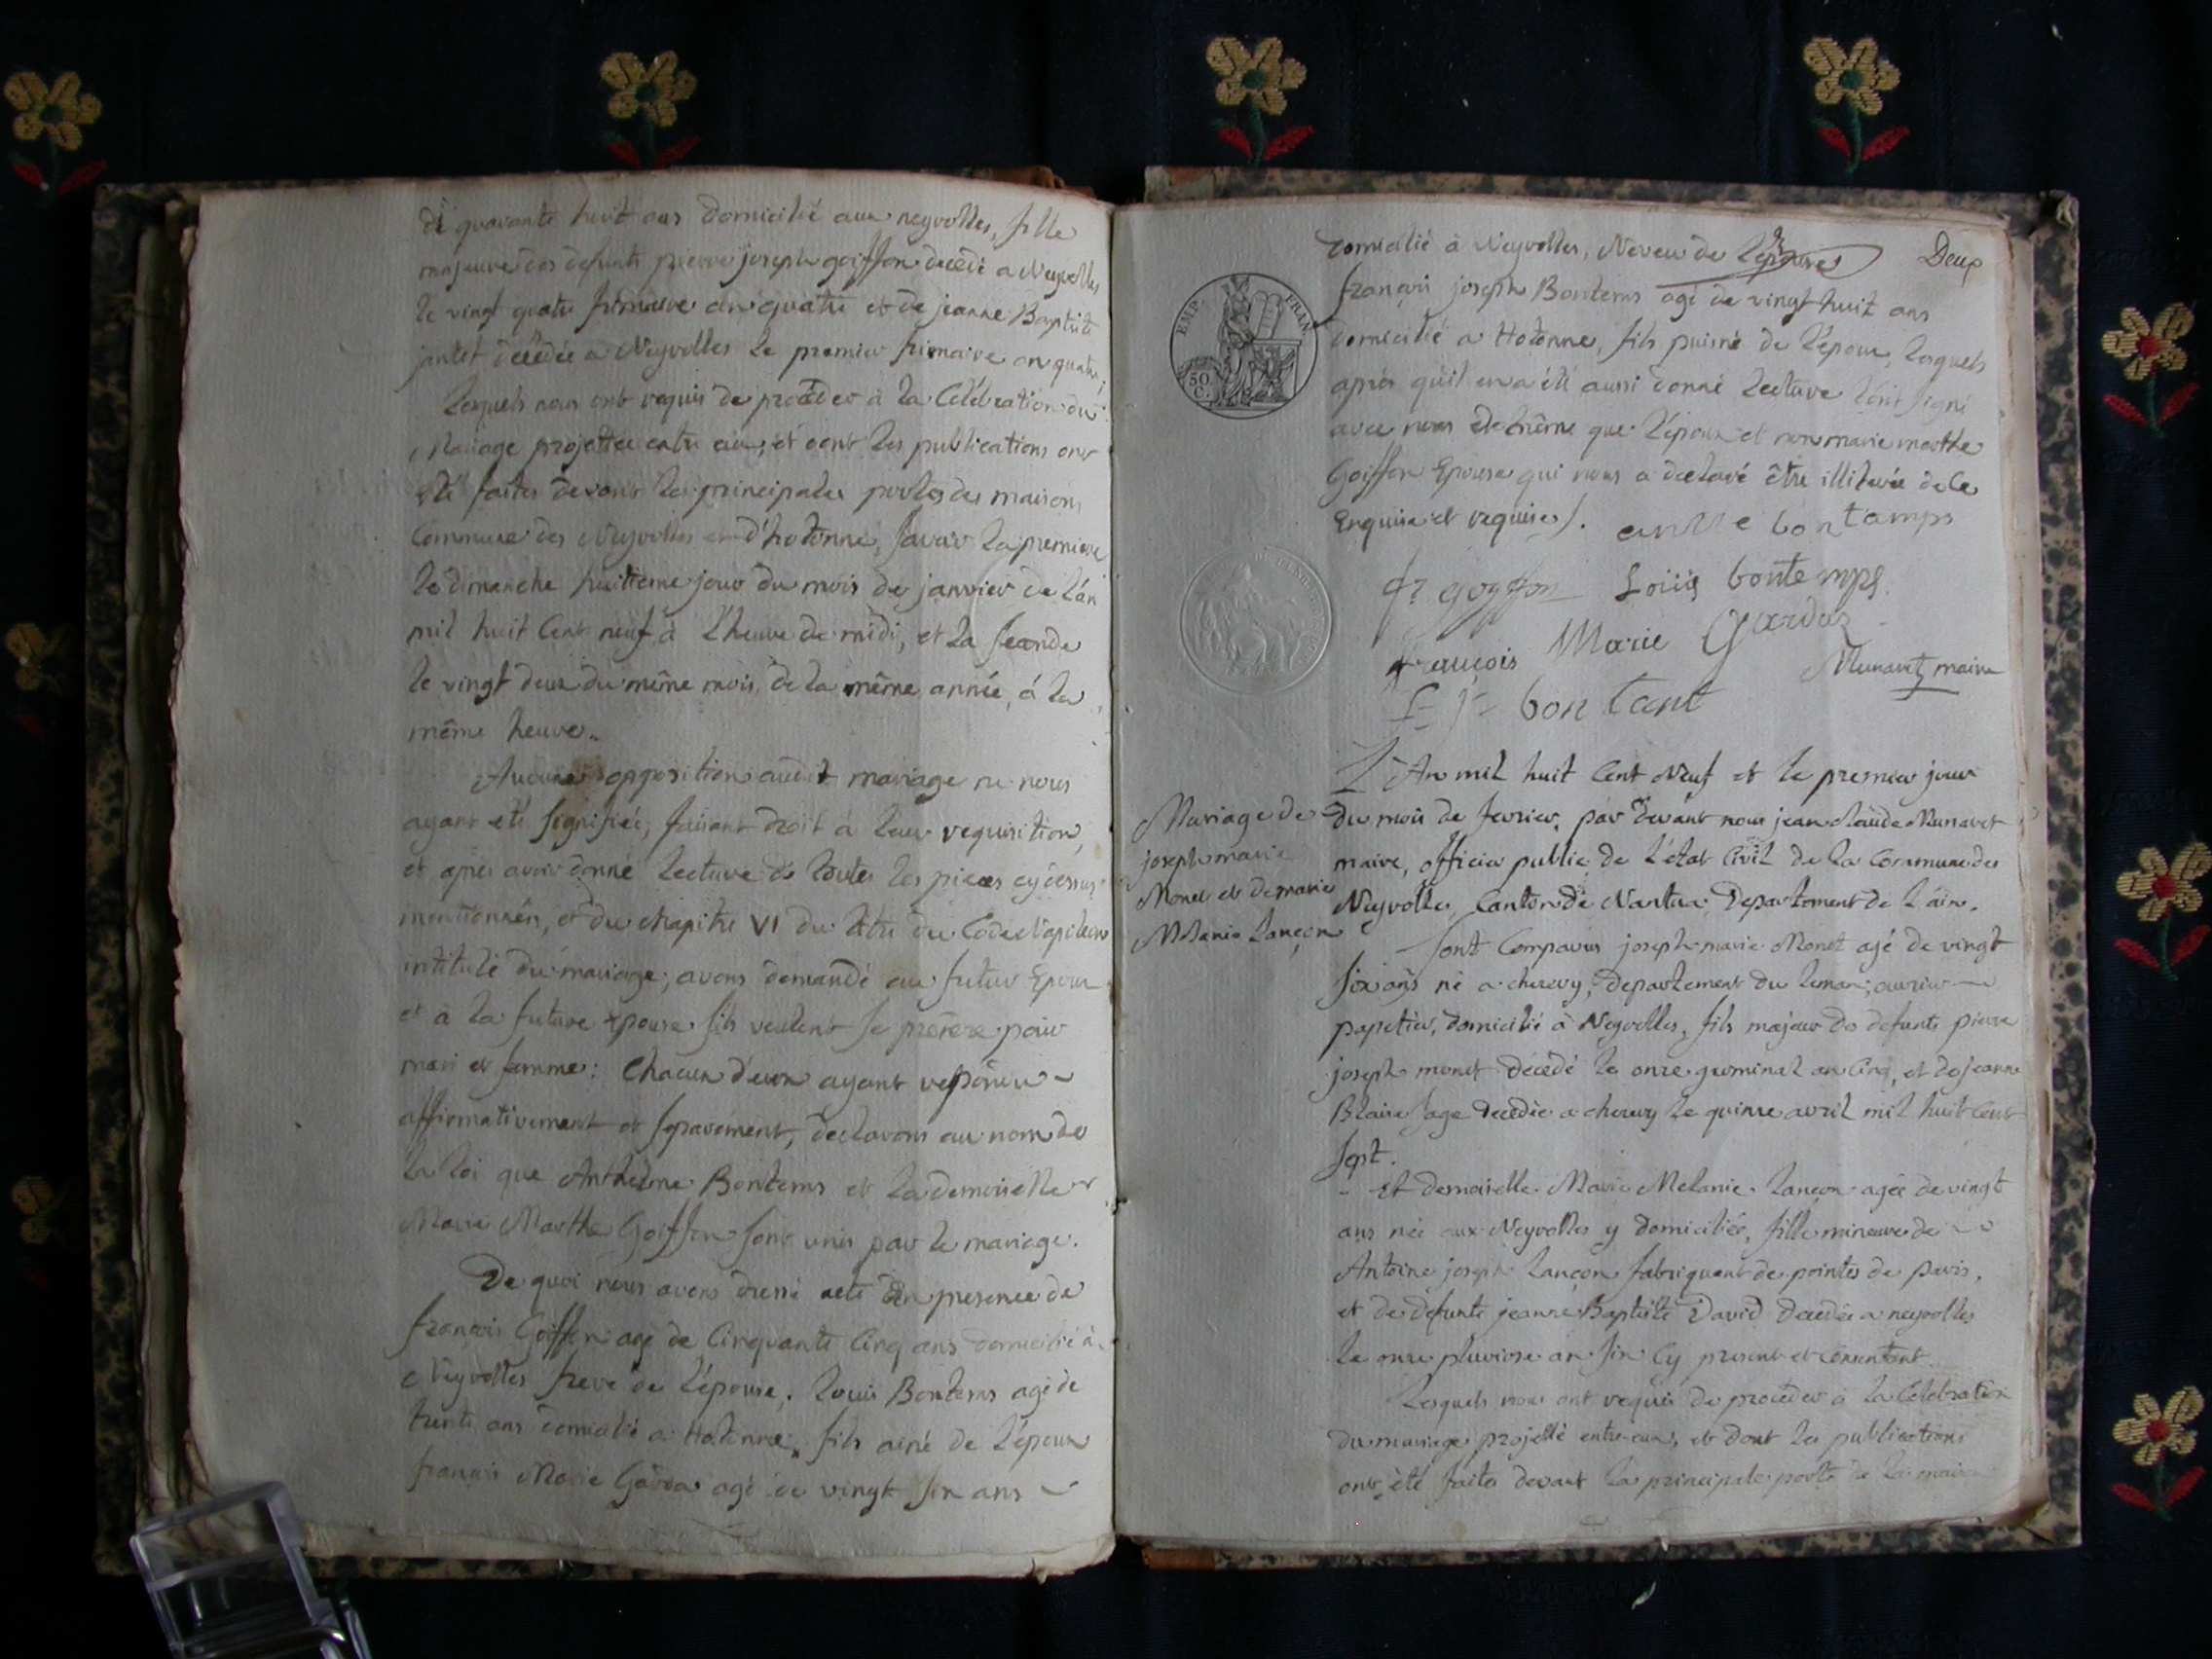 de quarante huit ans domicilié aux neyrolles, fille
majeure des defunts pierre joseph goiffon decedé a Neyrolles
le vingt quatre frimaire an quatre et de jeanne Baptiste
decedée a Neyrolles le premier frimaire an quatre;
Lesquels nous ont requis de proceder à la Célébration du
Mariage projettée entre eux; et dont les publications ont
été faites devant les principales portes des maisons
Commune des Neyrolles et d'hotonne, savoir la premiere
le dimanche huitieme jour du mois de janvier de l'an
mil huit Cent neuf à l'heure de midi, et la seconde
le vingt deux du même mois, de la même année, à la
même heure.
Aucune opposition audit mariage ne nous
ayant été signifiée, faisant droit à leur requisition,
et après avoir donné lecture de toutes les pieces cy dessus
mentionnées, et du chapitre VI du titre du Code Napoleon
intitulé du mariage; avons demandé au futur Epoux
et à la future epouse s'ils veulent se prendre pour
mari et femme: Chacun d'eux ayant repondu
affirmativement et separement, declarons au nom de
la loi que Anthelme Bontems et la demoiselle
Marie Marthe Goiffon sont unis par le mariage.
De quoi nous avons dressé acte en presence de
françois Goiffon agé de Cinquante Cinq ans domicilié à
Neyrolles frere de l'épouse, Louis Bontems agé de
trente ans domicilié a Hotonne, fils ainé de l'époux
françois Marie Gardaz agé de vingt six ans
Deux
domicilié à Neyrolles, Neveu de l'épouse
françois joseph Bontems agé de vingt huit ans
domicilié a Hotonne, fils puisné de l'époux, lesquels
après qu'il en a été aussi donné lecture l'ont signé
avec nous de même que l'époux et non marie marthe
Goiffon Epouse qui nous a declaré être illiterée de ce
Enquise et requise.
bontamps
fr goyffon Louis bontemps
françois Marie Gardaz
Munaret maire
f= j= bontant
EMP. FRAN.
50 C.
Mariage de
joseph marie
Monet et de marie
Melanie Lançon
L'An mil huit Cent Neuf et le premier jour
du mois de fevrier, par devant nous jean Claude Munaret
maire, officier public de l'état Civil de la Commune des
Neyrolles, Canton de Nantua, Departement de l'ain.
Sont Comparus joseph marie Monet agé de vingt
six ans né a chevry, departement du Leman, ouvrier
papetier, domicilié à Neyrolles, fils majeur de defunts pierre
joseph monet decedé le onze germinal an Cinq, et de jeanne
Blaise sage decedée a chevry le quinze avril mil huit Cent
sept.
Et demoiselle Marie Melanie Lançon agée de vingt
ans née aux Neyrolles y domiciliée, fille mineure de
Antoine joseph Lançon fabriquant de pointes de paris,
et de defunte jeanne Baptiste David decedée a neyrolles
le onze pluviose an six Cy present et Consentant
Lesquels nous ont requis de proceder à la Celebration
du mariage projetté entre eux, et dont les publications
ont été faites devant la principale porte de la maison